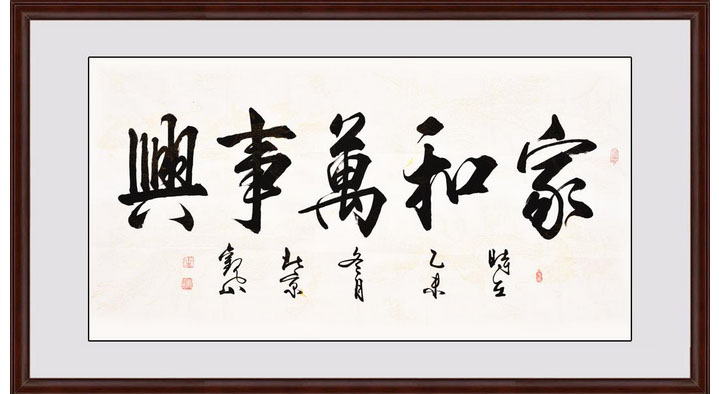 家和萬事興
時在
乙未
冬月
於京